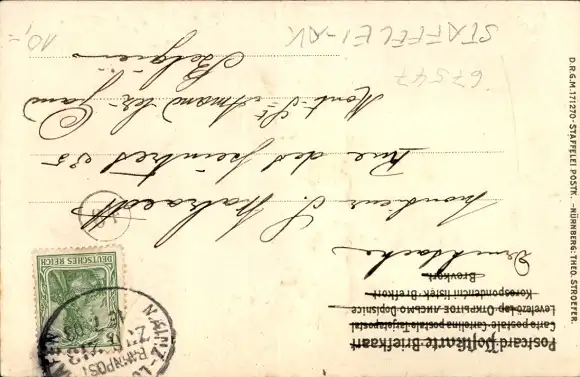 Postcard-Postkarte-Briefkaart
Carte postale-Cartolina postale-Tarjeta postal
Levelező-Lap-Открытое письмо-Dopisnice
Korespondenční lístek-Brefkort
Brevkort
Drucksache
Monsieur S.
Rue des peintres 85
Mont-St-Amand lez Gand
Belgien
DEUTSCHES REICH
MAINZ
BAHNPOST
D.R.G.M. 171270-STAFFELEI POSTK.-NÜRNBERG-THEO. STROEFER.
STAFFELEI-AK
67547
10,-